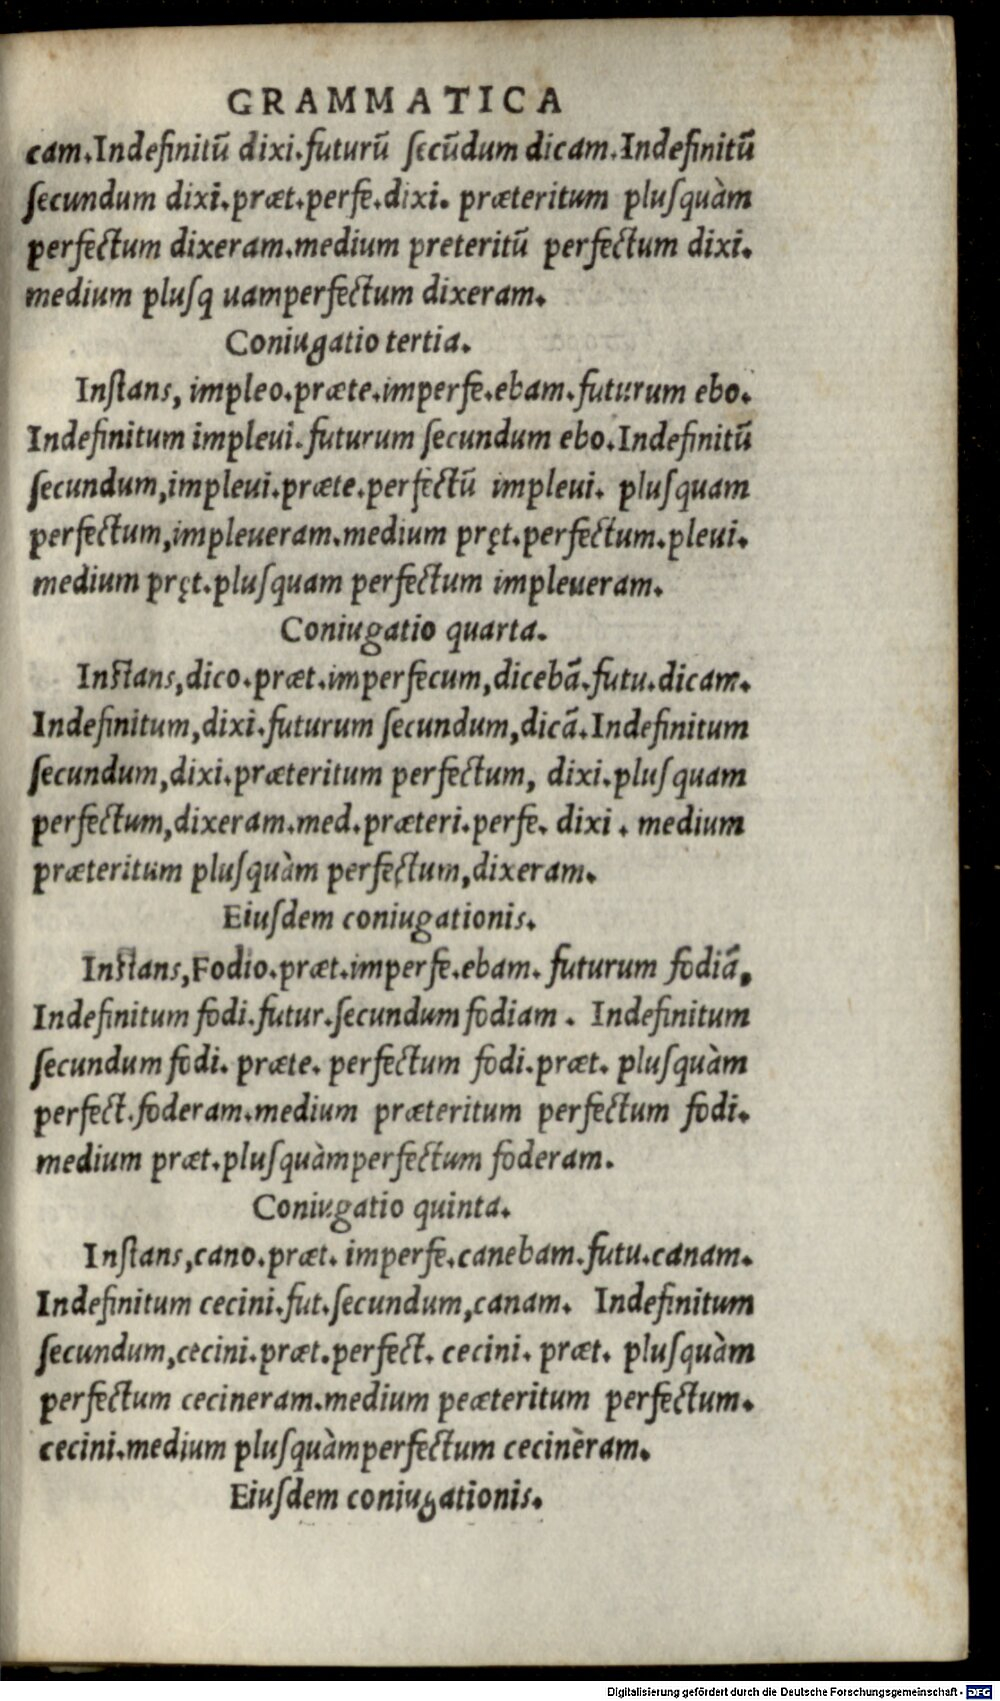 GRAMMATICA
cam.Indefinitũ dixi.futurũ ſecũdum dicam.Indefinitũ
ſecundum dixi.præt.perfe.dixi. præteritum pluſquàm
perfectum dixeram.medium preteritũ perfectum dixi.
medium pluſq uamperfectum dixeram.
Coniugatio tertia.
Inſtans, impleo.præte.imperfe.ebam.futurum ebo.
Indefinitum impleui.futurum ſecundum ebo.Indefinitũ
ſecundum,impleui.præte.perfectũ impleui. pluſquam
perfectum,impleueram.medium pręt.perfectum.pleui.
medium pręt.pluſquam perfectum impleueram.
Coniugatio quarta.
Inſtans,dico.præt.imperfecum,dicebã.futu.dicam.
Indefinitum,dixi.futurum ſecundum,dicã.Indefinitum
ſecundum,dixi.præteritum perfectum, dixi.pluſquam
perfectum,dixeram.med.præteri.perfe. dixi . medium
præteritum pluſquàm perfectum,dixeram.
Eiuſdem coniugationis.
Inſtans,Fodio.præt.imperfe.ebam. futurum fodiã,
Indefinitum fodi.futur.ſecundum fodiam . Indefinitum
ſecundum fodi. præte. perfectum fodi.præt. pluſquàm
perfect.foderam.medium præteritum perfectum fodi.
medium præt.pluſquàmperfectum foderam.
Coniugatio quinta.
Inſtans,cano.præt. imperfe.canebam.futu.canam.
Indefinitum cecini.fut.ſecundum,canam. Indefinitum
ſecundum,cecini.præt.perfect. cecini. præt. pluſquàm
perfectum cecineram.medium peæteritum perfectum.
cecini.medium pluſquàmperfectum cecinèram.
Eiuſdem coniugationis.
Digitalisierung gefördert durch die Deutsche Forschungsgemeinschaft - DFG